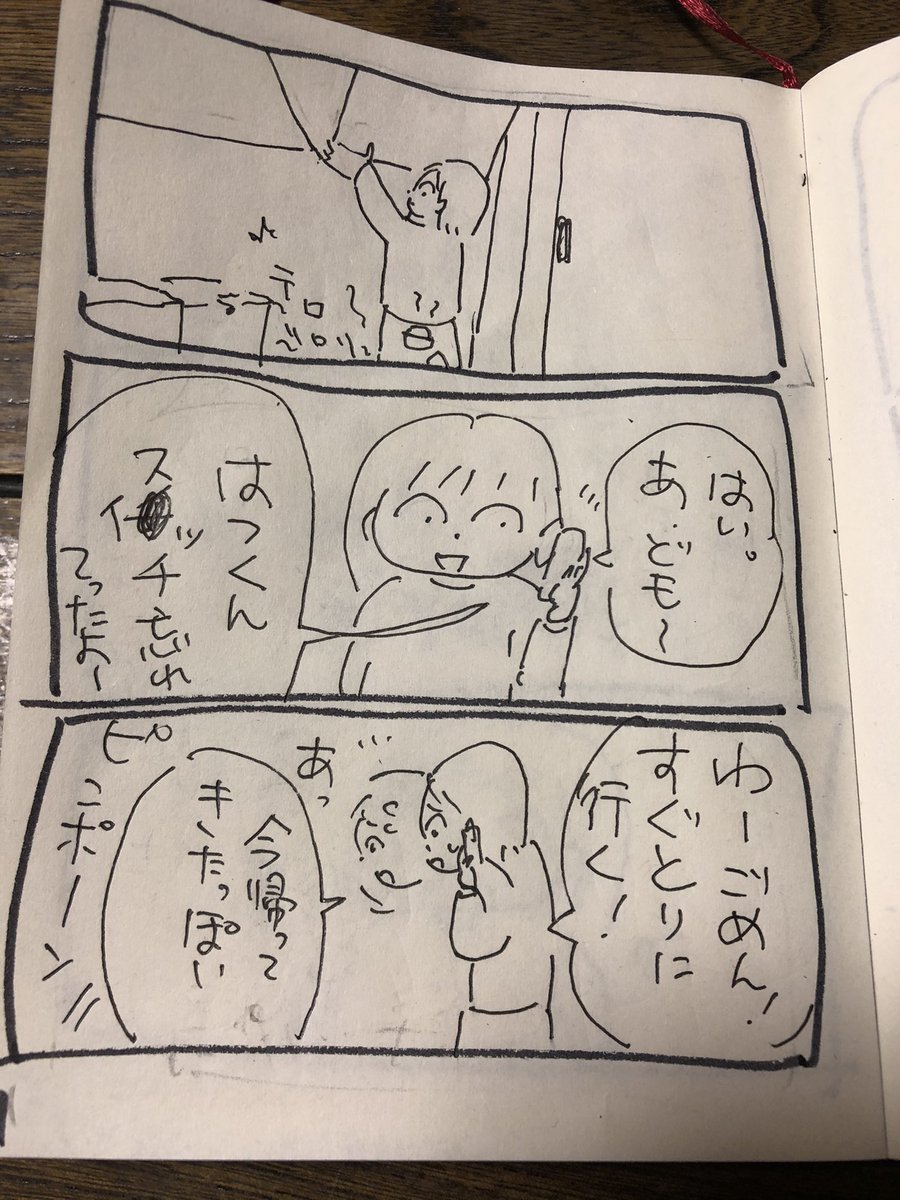 テロ〜
ゴロリン
はい。
あ、ども〜
はっくん
スイッチ忘れ
てったよ〜
わーごめん!
すぐとりに
行く!
あっ
今帰って
きたっぽい
ピンポーン